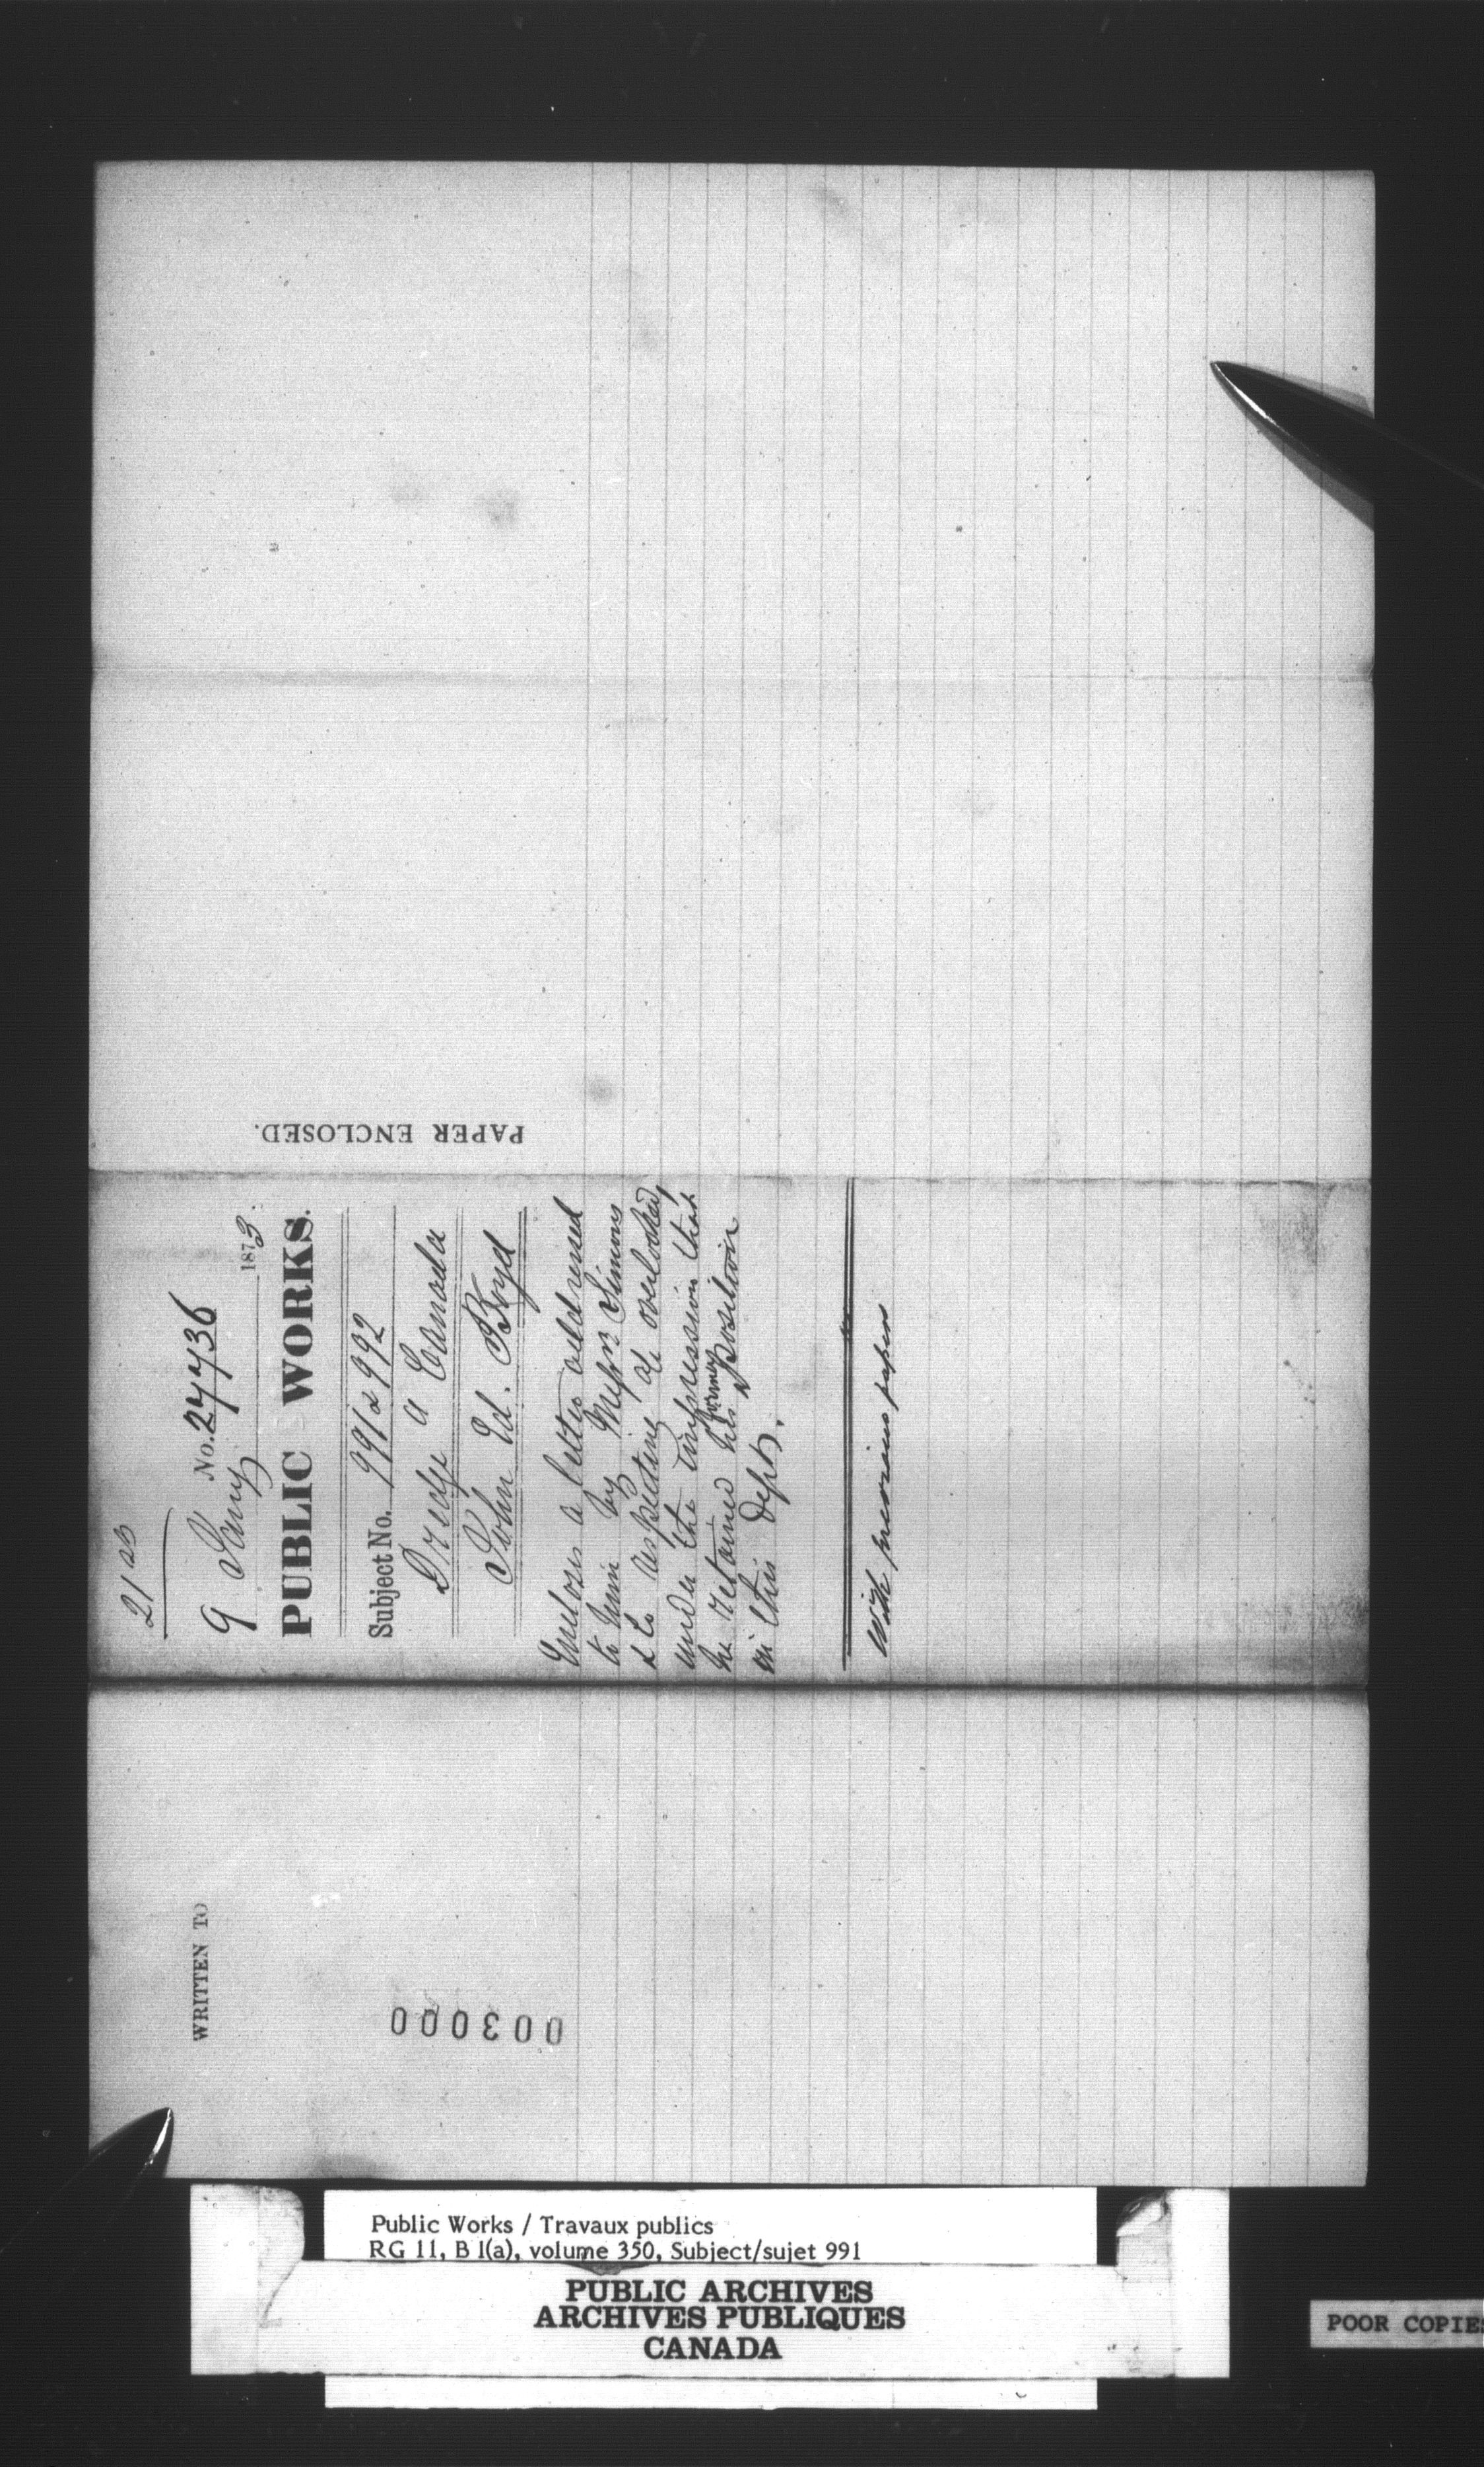 PAPER ENCLOSED.
21
No. 27736
9 Jany 1873.
PUBLIC WORKS.
Subject No. 991 & 992
Dredge a Canada
John Ed. Boyd
Encloses a letter addressed
to him by Messrs Simons
& Co respecting
under the impression that
he retained his former position
in this Dept.
With previous papers
WRITTEN TO
000300
Public Works / Travaux publics
RG 11, B 1(a), volume 350, Subject/sujet 991
PUBLIC ARCHIVES
ARCHIVES PUBLIQUES
CANADA
POOR COPIES